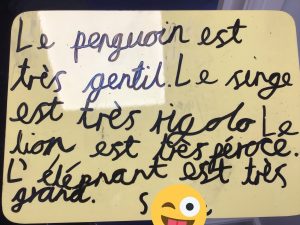 Le penguoin est
très gentil. Le singe
est très rigolo Le
lion est très féroce.
L'éléphant est très
grand.